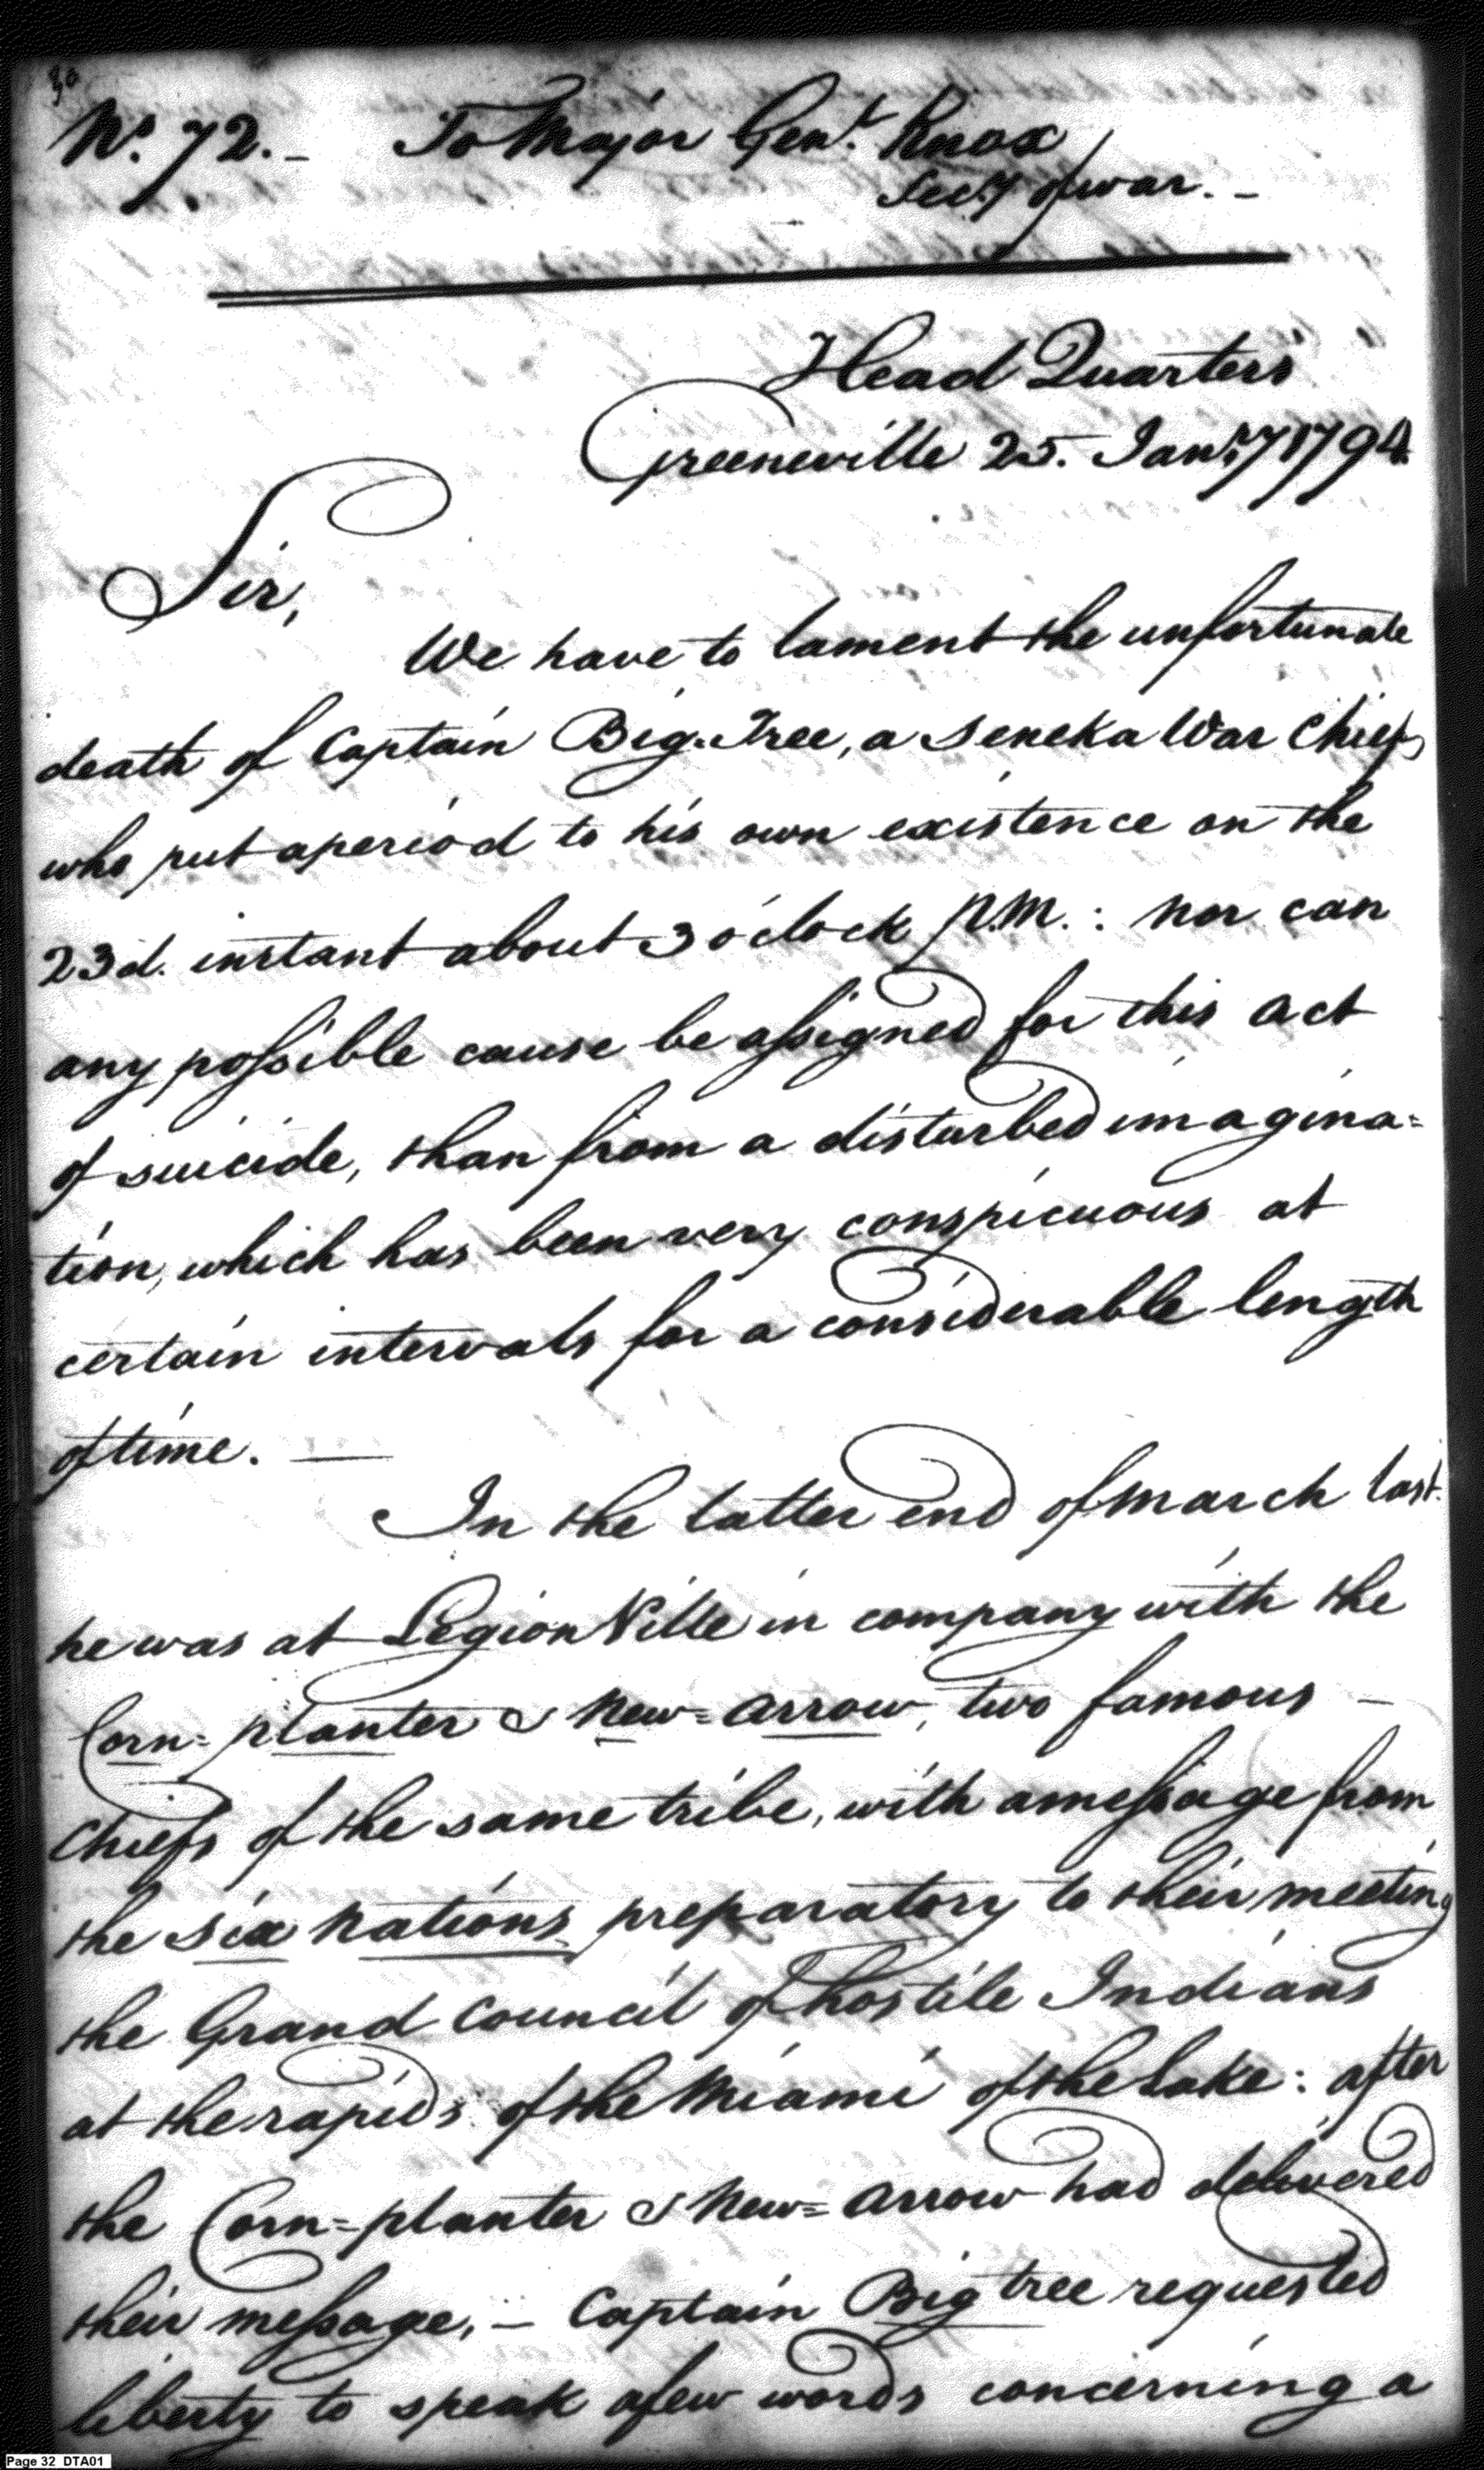 30
No. 72. - To Major Genl. Knox
Secy of war. -
Head Quarters
Greeneville 25. Jany. 1794.
Sir,
We have to lament the unfortunate
death of Captain Big-Tree, a Seneka War Chief,
who put a period to his own existence on the
23d. instant about 3 o'clock P.M.: nor can
any possible cause be assigned for this act
of suicide, than from a disturbed imagina=
tion, which has been very conspicuous at
certain intervals for a considerable length
of time. —
In the latter end of March last.
he was at LegionVille in company with the
Corn=planter & New=Arrow, two famous -
Chiefs of the same tribe, with a message from
the six Nations, preparatory to their meeting
the Grand Council of hostile Indians
at the rapids of the Miami of the Lake: after
the Corn=planter & New=Arrow had delivered
their message, - Captain Big tree requested
liberty to speak a few words concerning a
Page 32 DTA01